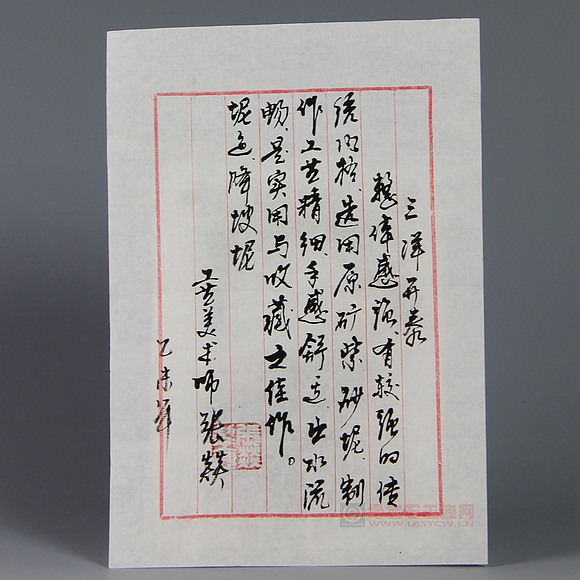 三洋开泰
整体感强，有较强的传
统内核，选用原矿紫砂坭，制
作工艺精细，手感舒适，出水流
畅，是实用与收藏之佳作。
坭色降坡坭
工艺美术师 张燚
乙未年
WWW.LBSYCW.CN